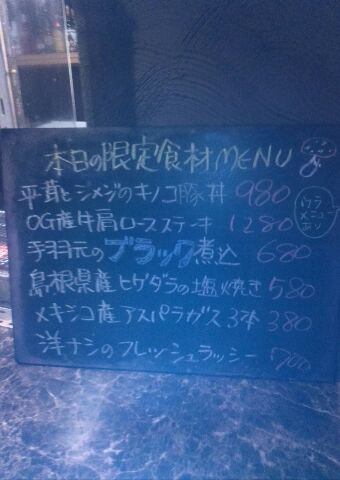 本日の限定食材MENU
平茸とシメジのキノコ豚丼 980
OG産牛肩ロースステーキ 1280
手羽元のブラック煮込 680
島根県産ヒゲダラの塩焼き 580
メキシコ産アスパラガス3本 380
洋ナシのフレッシュラッシー 700
ウラ
メニュー
あり